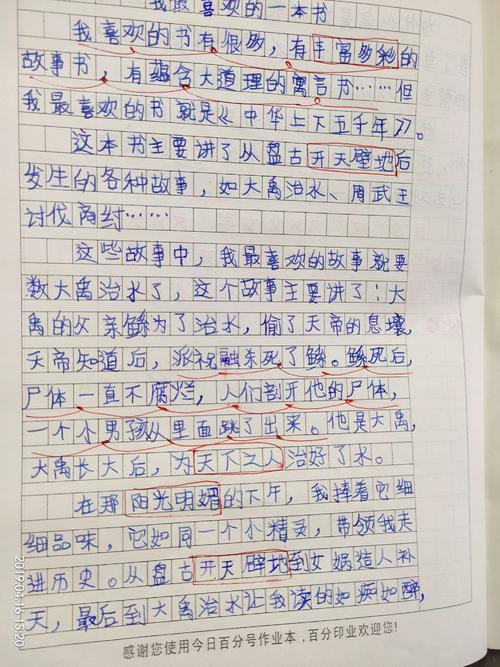 我最喜欢的一本书
我喜欢的书有很多，有丰富多彩的
故事书，有蕴含大道理的寓言书……但
我最喜欢的书就是《中华上下五千年》。
这本书主要讲了从盘古开天壁地后
发生的各种故事，如大禹治水、周武王
讨伐商纣……
这些故事中，我最喜欢的故事就要
数大禹治水了，这个故事主要讲了：大
禹的父亲鲧为了治水，偷了天帝的息壤，
天帝知道后，派祝融杀死了鲧。鲧死后，
尸体一直不腐烂，人们剖开他的尸体，
一个小男孩从里面跳了出来。他是大禹，
大禹长大后，为天下之人治好了水。
在那阳光明媚的下午，我捧着它细
细品味，它如同一个小精灵，带领我走
进历史。从盘古开天辟地到女娲造人补
天，最后到大禹治水让我读的如痴如醉，
感谢您使用今日百分号作业本，百分印业欢迎您！
2019/04/16 15:20